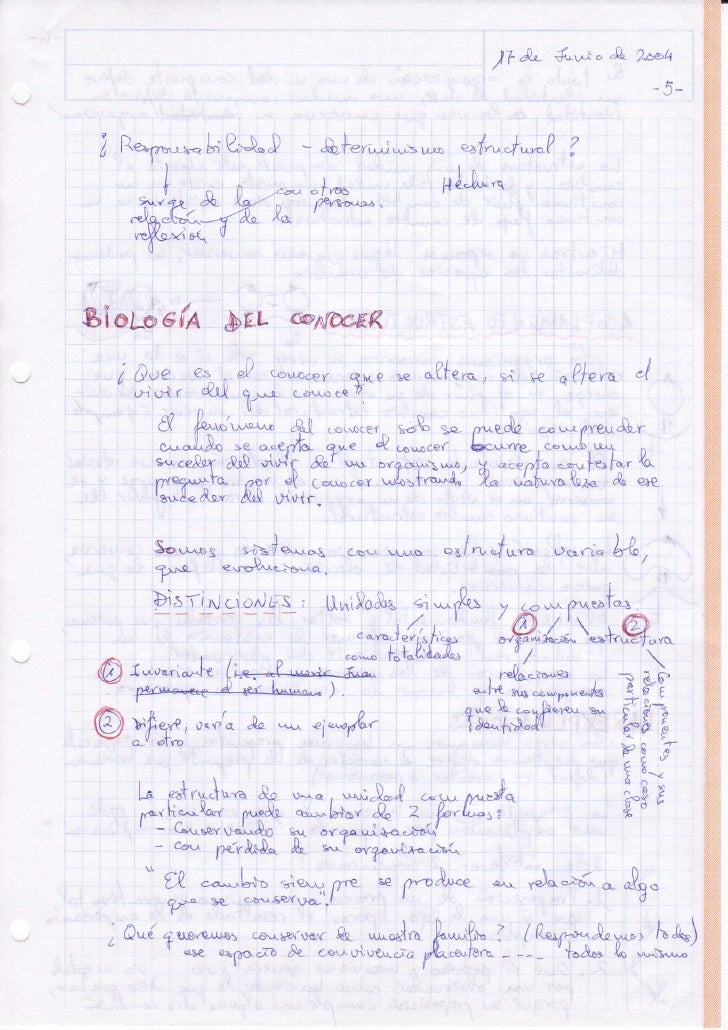 17 de Junio de 2004
-5-
¿Responsabilidad - determinismo estructural?
Héchura
surge de la con otros personas.
relación y de la
reflexión
BIOLOGÍA DEL CONOCER
¿Que es el conocer que se altera, si se altera el
vivir del que conoce?
El fenómeno del conocer solo se puede comprender
cuando se acepta que el conocer ocurre como un
suceder del vivir de un organismo, y acepta contestar la
pregunta por el conocer mostrando la naturaleza de ese
suceder del vivir.
Somos sistemas con una estructura variable,
que evoluciona.
DISTINCIONES: Unidades simples y compuestas.
características
como totalidades
1 organización estructura 2
relaciones
entre sus componentes
que le confieren su
identidad
Componentes y sus
relaciones como caso
particular de una clase
1 Invariante (i.e. al morir Juan
permanece el ser humano).
2 Difiere, varía de un ejemplar
a otro
La estructura de una unidad compuesta
particular puede cambiar de 2 formas:
- Conservando su organización
- con pérdida de su organización
"El cambio siempre se produce en relación a algo
que se conserva".
¿Qué queremos conservar de nuestra familia? (Respondemos todos)
ese espacio de convivencia placentera ---- todos lo mismo